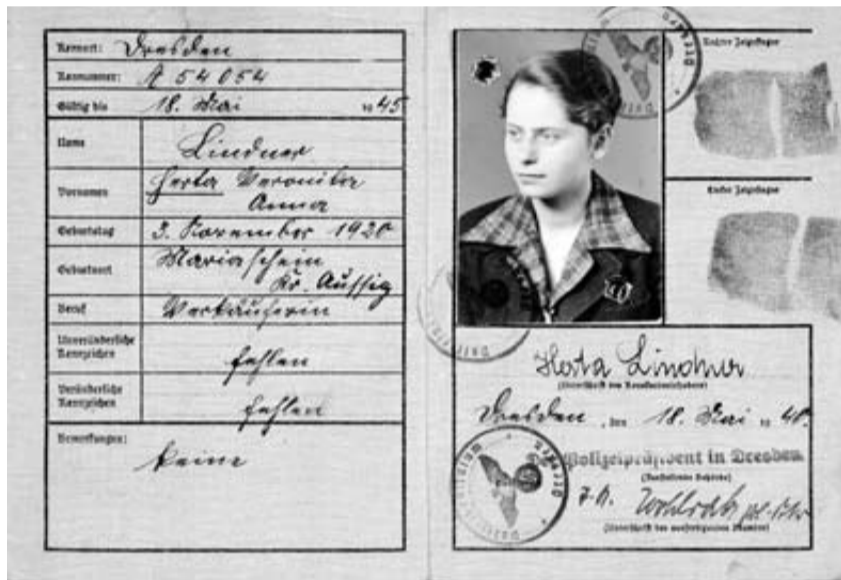 Kennort: Dresden
Kennummer: A 54054
Gültig bis 18. Mai 1945
Name Lindner
Vornamen Herta Veronika
Anna
Geburtstag 3. November 1920
Geburtsort Mariaschein
Kr. Aussig
Beruf Verkäuferin
Unveränderliche
Kennzeichen fehlen
Veränderliche
Kennzeichen fehlen
Bemerkungen:
keine
Rechter Zeigefinger
Linker Zeigefinger
Herta Lindner
(Unterschrift des Kennkarteninhabers)
Dresden, den 18. Mai 1940.
Der Polizeipräsident in Dresden
(Ausstellende Behörde)
(Unterschrift des ausfertigenden Beamten)